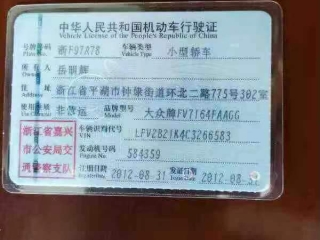 中华人民共和国机动车行驶证
Vehicle License of the People's Republic of China
号牌号码 浙F97A78 车辆类型 小型轿车
Plate No. Vehicle Type
所有人 岳鹏辉
Owner
住址 浙江省平湖市钟埭街道环北二路775号302室
非营运 品牌型号 大众牌FV7164FAAGG
Model
浙江省嘉兴 车辆识别代号 LFV2B21K4C3266583
VIN
市公安局交 发动机号码 584359
Engine No.
通警察支队 注册日期 2012-08-31 发证日期 2012-08-31
Register Date Issue Date